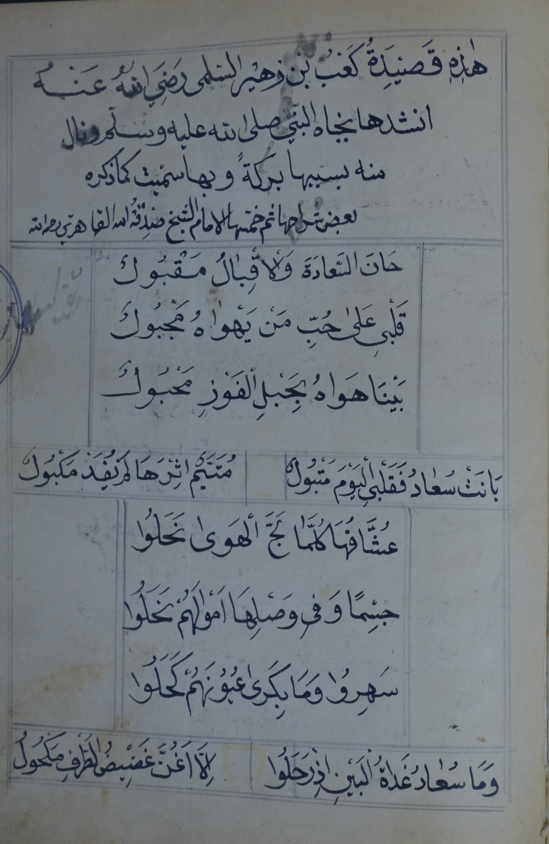 هٰذِهِ قَصِيدَةُ كَعْبُ بْن زُهَيْر السّلمى رَضِيَ اللهُ عَنْهُ
انشدها بجاه النبّي صلى الله عليه وسلم ونال
منه بسببها بركةً وبها سميت كما ذكره
بعض شراحها ثم خمّسها الامام الشيخ صدقة الله القاهرى رحمه الله
حَانَ السَّعَادَة وَالْاقْبَالُ مَقْبُوك
قَلْبِى عَلىٰ حُبِّ مَنْ يَهْوَاهُ مَجْبُوكُ
بَيْنَا هَوَاهُ بِحَبْلِ الْفَوْزِ مَحْبُوكْ
بَانَتْ سُعَادُ فَقَلْبِى الْيَوْمَ مَتْبُولُ مُتَيَّمٌ اِثْرَهَا لَمْ يُفْدَ مَكْبُولُ
عُشَّاقُهَا كُلَّمَا لَجَّ الْهَوىٰ نَحَلُوا
جِسْمًا وَفِى وَصْلِهَا اَمْوَالَهُمْ نَحَلُوا
سَهِرُوا وَمَا بِكَرىٰ عُيُونَهُمْ كَحَلُوا
وَمَا سُعَادُ غَدَاةَ الْبَيْنِ اِذْ رَحَلُوا اِلَّا اَغَنُّ غَضِيضُ الطَّرْفِ مَكْحُولُ